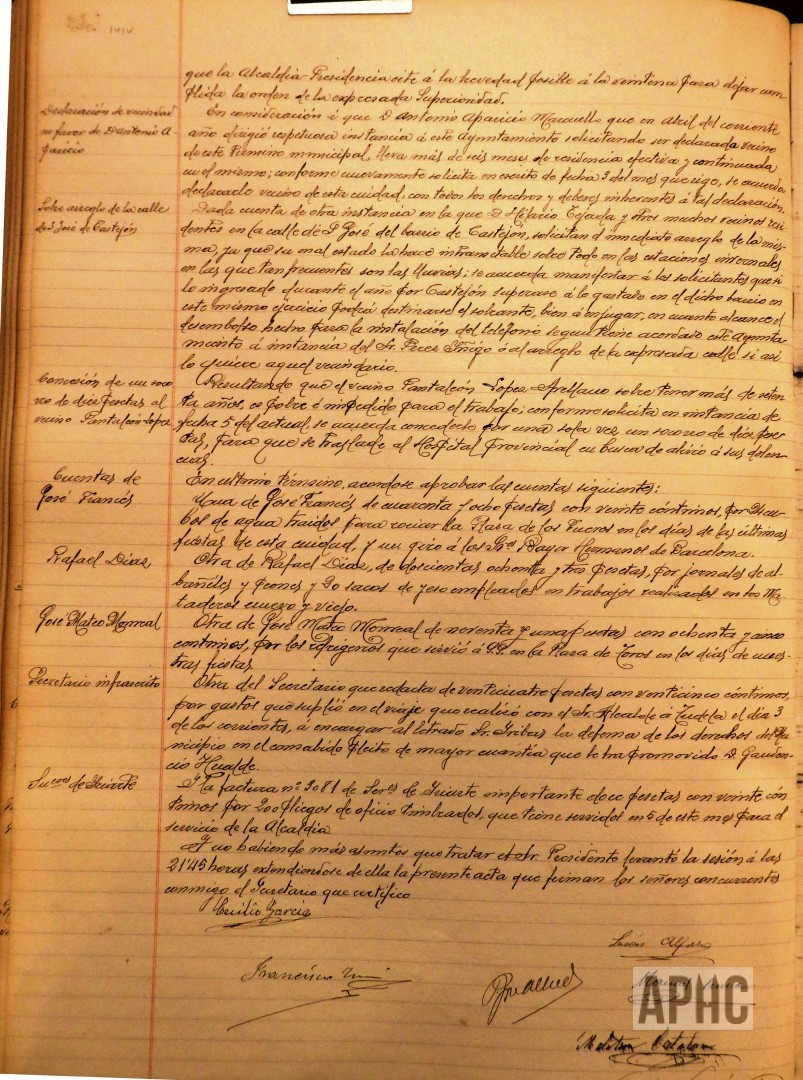 que la Alcaldia-Presidencia cite á la brevedad posible á la veintena para dejar cum-
plida la orden de la expresada Superioridad.
Declaración de vecindad
a favor de D Antonio A-
paricio
En consideración á que D Antonio Aparicio que en Abril del corriente
año dirigió respetuosa instancia á este Ayuntamiento solicitando ser declarado vecino
de este Término municipal, lleva más de seis meses de residencia efectiva y continuada
en el mismo; conforme nuevamente solicita en escrito de fecha 3 del mes que rige, se acuerda
declararle vecino de esta ciudad, con todos los derechos y deberes inherentes á tal declaración.
Sobre arreglo de la calle
de S. José de Castejón
Dada cuenta de otra instancia en la que D Tejada y otros muchos vecinos resi-
dentes en la calle de S José del barrio de Castejón, solicitan el inmediato arreglo de la mis-
ma, ya que su mal estado la hace intransitable sobre todo en las estaciones invernales
en las que tan frecuentes son las lluvias; se acuerda manifestar á los solicitantes que si
lo ingresado durante el año por Castejón superase á lo gastado en el dicho barrio en
este mismo ejercicio podrá destinarse el sobrante, bien á enjugar, en cuanto alcance el
desembolso hecho para la instalación del teléfono segun tiene acordado este Ayunta-
miento á instancia del Sr. Perez Iñigo ó al arreglo de la expresada calle si asi
lo quiere aquel vecindario.
Concesión de un soco-
rro de diez pesetas al
vecino Pantaleón Lopez
Resultando que el vecino Pantaleón Lopez Arellano sobre tener más de seten-
ta años, es pobre é impedido para el trabajo; conforme solicita en instancia de
fecha 5 del actual, se acuerda concederle por una sola vez, un socorro de diez pese-
tas, para que se traslade al Hospital Provincial en busca de alivio á sus dolen-
cias.
Cuentas de
José Francés
En último término, acordose aprobar las cuentas siguientes:
Una de José Francés de cuarenta y ocho pesetas con veinte céntimos, por
bos de agua traidos para rociar la Plaza de los Fueros en los días de las últimas
fiestas de esta ciudad, y un giro á los Sres Bayer Hermanos de Barcelona.
Rafael Diaz,
Otra de Rafael Diaz, de doscientas ochenta y tres pesetas, por jornales de al-
bañiles y peones y 20 sacos de yeso empleados en trabajos realizados en los Ma-
taderos nuevo y viejo.
José Mateo Monreal
Otra de José Mateo Monreal de noventa y una pesetas con ochenta y cinco
centimos, por los refrigerios que sirvió á SS. en la Plaza de Toros en los días de nues-
tras fiestas
Secretario infrascrito
Otra del Secretario que redacta de veinticuatro pesetas con veinticinco céntimos,
por gastos que suplió en el viaje que realizó con el Sr. Alcalde á Tudela el día 3
de los corrientes, á encargar al letrado Sr. Iribas la defensa de los derechos del Mu-
nicipio en el consabido pleito de mayor cuantía que le ha promovido D. Gauden-
cio Hualde.
Sucres de Iriarte
Y la factura nº 3081 de Sores de Iriarte importante doce pesetas con veinte cén-
timos por 200 pliegos de oficio timbrados, que tiene servidos en 5 de este mes para el
servicio de la Alcaldia
Y no habiendo más asuntos que tratar el Sr. Presidente levantó la sesión á las
21'45 horas extendiendose de ella la presente acta que firman los señores concurrentes
conmigo el Secretario que certifico
Cecilio Garcia
Alfaro
Francisco
Catalan
APHC